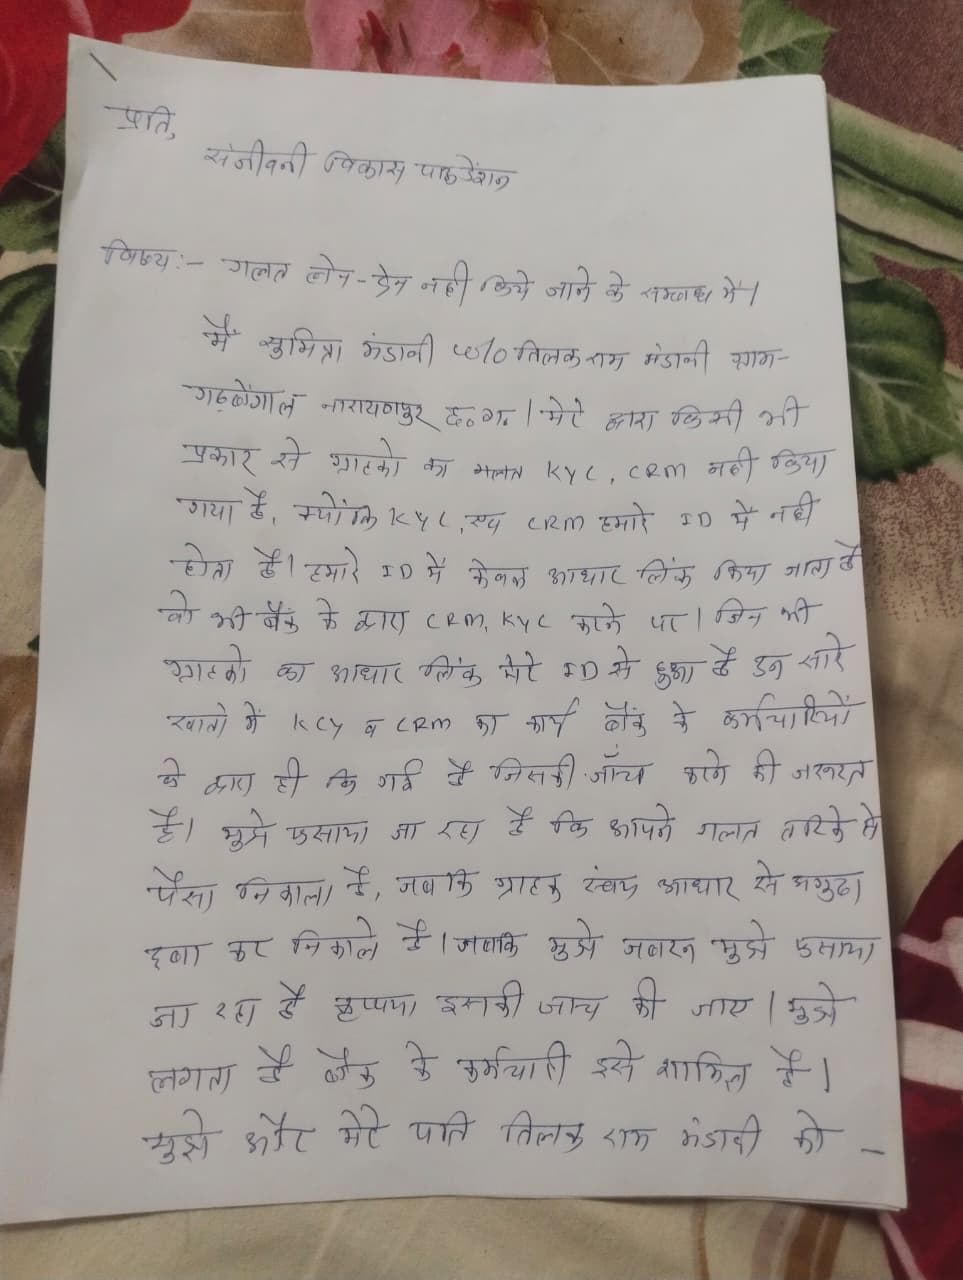 प्रति,
संजीवनी विकास फाउडेंशन
विषय :- गलत लेन-देन नही किये जाने के सम्बन्ध में।
मैं सुमित्रा मंडावी w/o तिलक राम मंडावी ग्राम-
गढ़बेंगाल नारायणपुर छ.ग.। मेरे द्वारा किसी भी
प्रकार से ग्राहको का गलत KYC, CRM नही किया
गया है, क्योंकि KYC, एवं CRM हमारे ID में नही
होता है। हमारे ID में केवल आधार लिंक किया जाता है
वो भी बैंक के द्वारा CRM, KYC करने पर। जिन भी
ग्राहको का आधार लिंक मेरे ID से हुआ है उन सारे
खातो में KCY व CRM का कार्य बैंक के कर्मचारियों
के द्वारा ही कि गई है जिसकी जाँच करने की जरूरत
है। मुझे फसाया जा रहा है कि आपने गलत तरिके से
पैसा निकाला है, जबकि ग्राहक स्वंय आधार से अगुठा
दबा कर निकाले है। जबकि मुझे जबरन मुझे फसाया
जा रहा है कृप्पया इसकी जाच की जाए। मुझे
लगता है बैंक के कर्मचारी इसे शामिल है।
मुझे और मेरे पति तिलक राम मंडावी को -